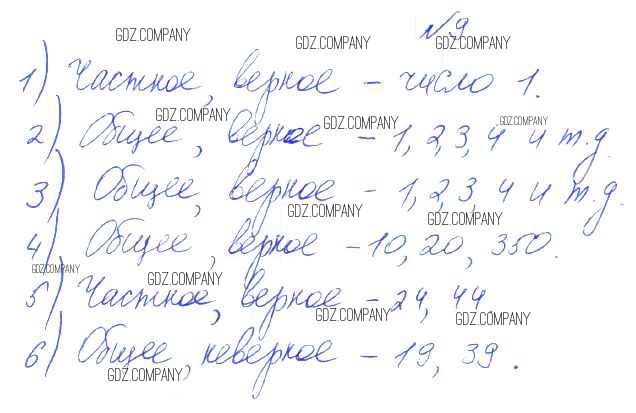 №9
GDZ.COMPANY GDZ.COMPANY GDZ.COMPANY
1) Частное, верное – число 1.
GDZ.COMPANY GDZ.COMPANY GDZ.COMPANY
2) Общее, верное – 1, 2, 3, 4 и т.д.
3) Общее, верное – 1, 2, 3, 4 и т.д.
GDZ.COMPANY GDZ.COMPANY
4) Общее, верное – 10, 20, 350.
GDZ.COMPANY GDZ.COMPANY
5) Частное, верное – 24, 44
GDZ.COMPANY GDZ.COMPANY
6) Общее, неверное – 19, 39.
GDZ.COMPANY